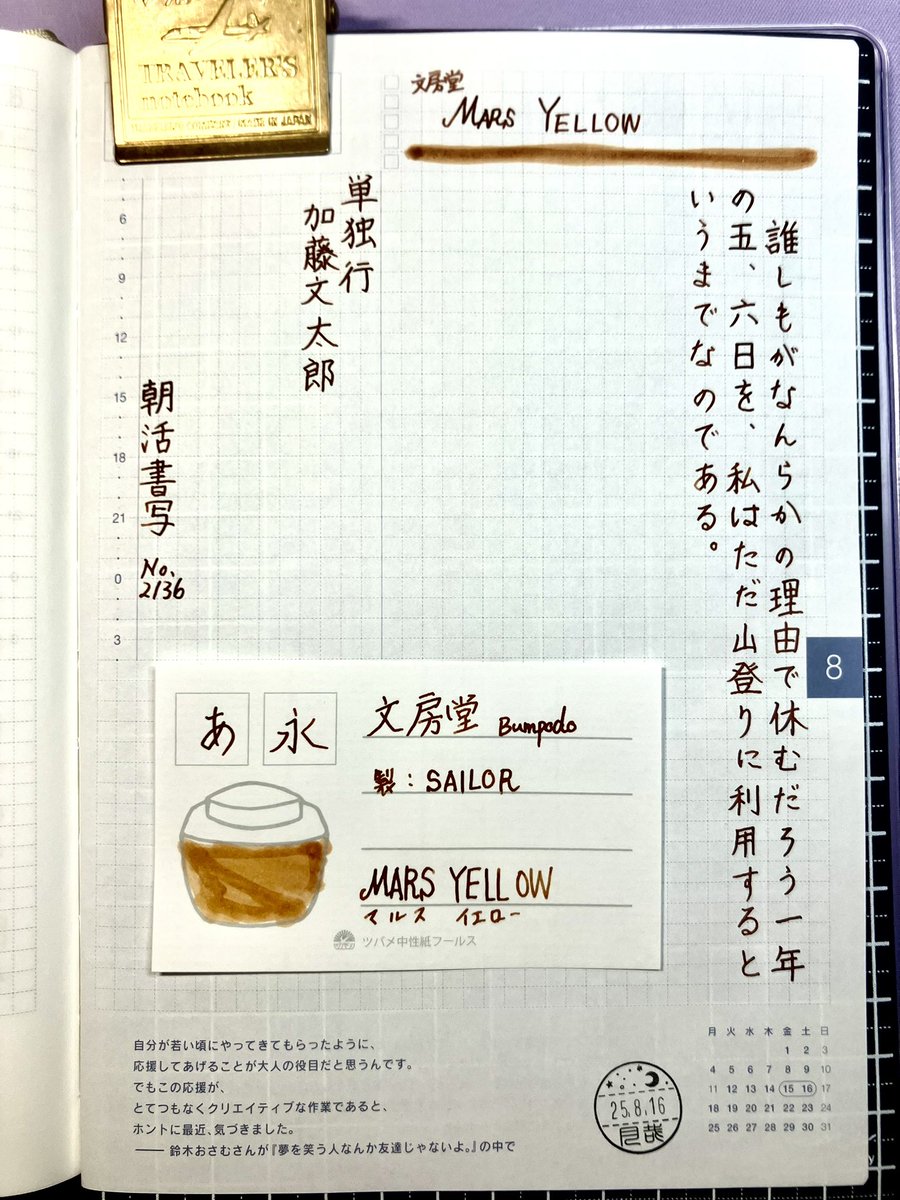 TRAVELER'S
notebook
MADE IN JAPAN
文房堂
MARS YELLOW
誰しもがなんらかの理由で休むだろう一年
の五、六日を、私はただ山登りに利用すると
いうまでなのである。
単独行
加藤文太郎
朝活書写
No.
2136
6
9
12
15
18
21
0
3
8
あ 永
文房堂 Bumpodo
製：SAILOR
MARS YELLOW
マルス イエロー
ツバメ中性紙フールス
自分が若い頃にやってきてもらったように、
応援してあげることが大人の役目だと思うんです。
でもこの応援が、
とてつもなくクリエイティブな作業であると、
ホントに最近、気づきました。
―― 鈴木おさむさんが『夢を笑う人なんか友達じゃないよ。』の中で
25.8.16
月 火 水 木 金 土 日
1 2 3
4 5 6 7 8 9 10
11 12 13 14 15 16 17
18 19 20 21 22 23 24
25 26 27 28 29 30 31